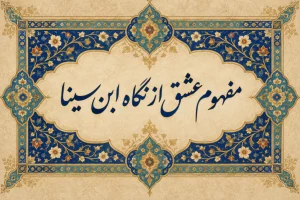 مفهوم عشق از نگاه ابن سینا